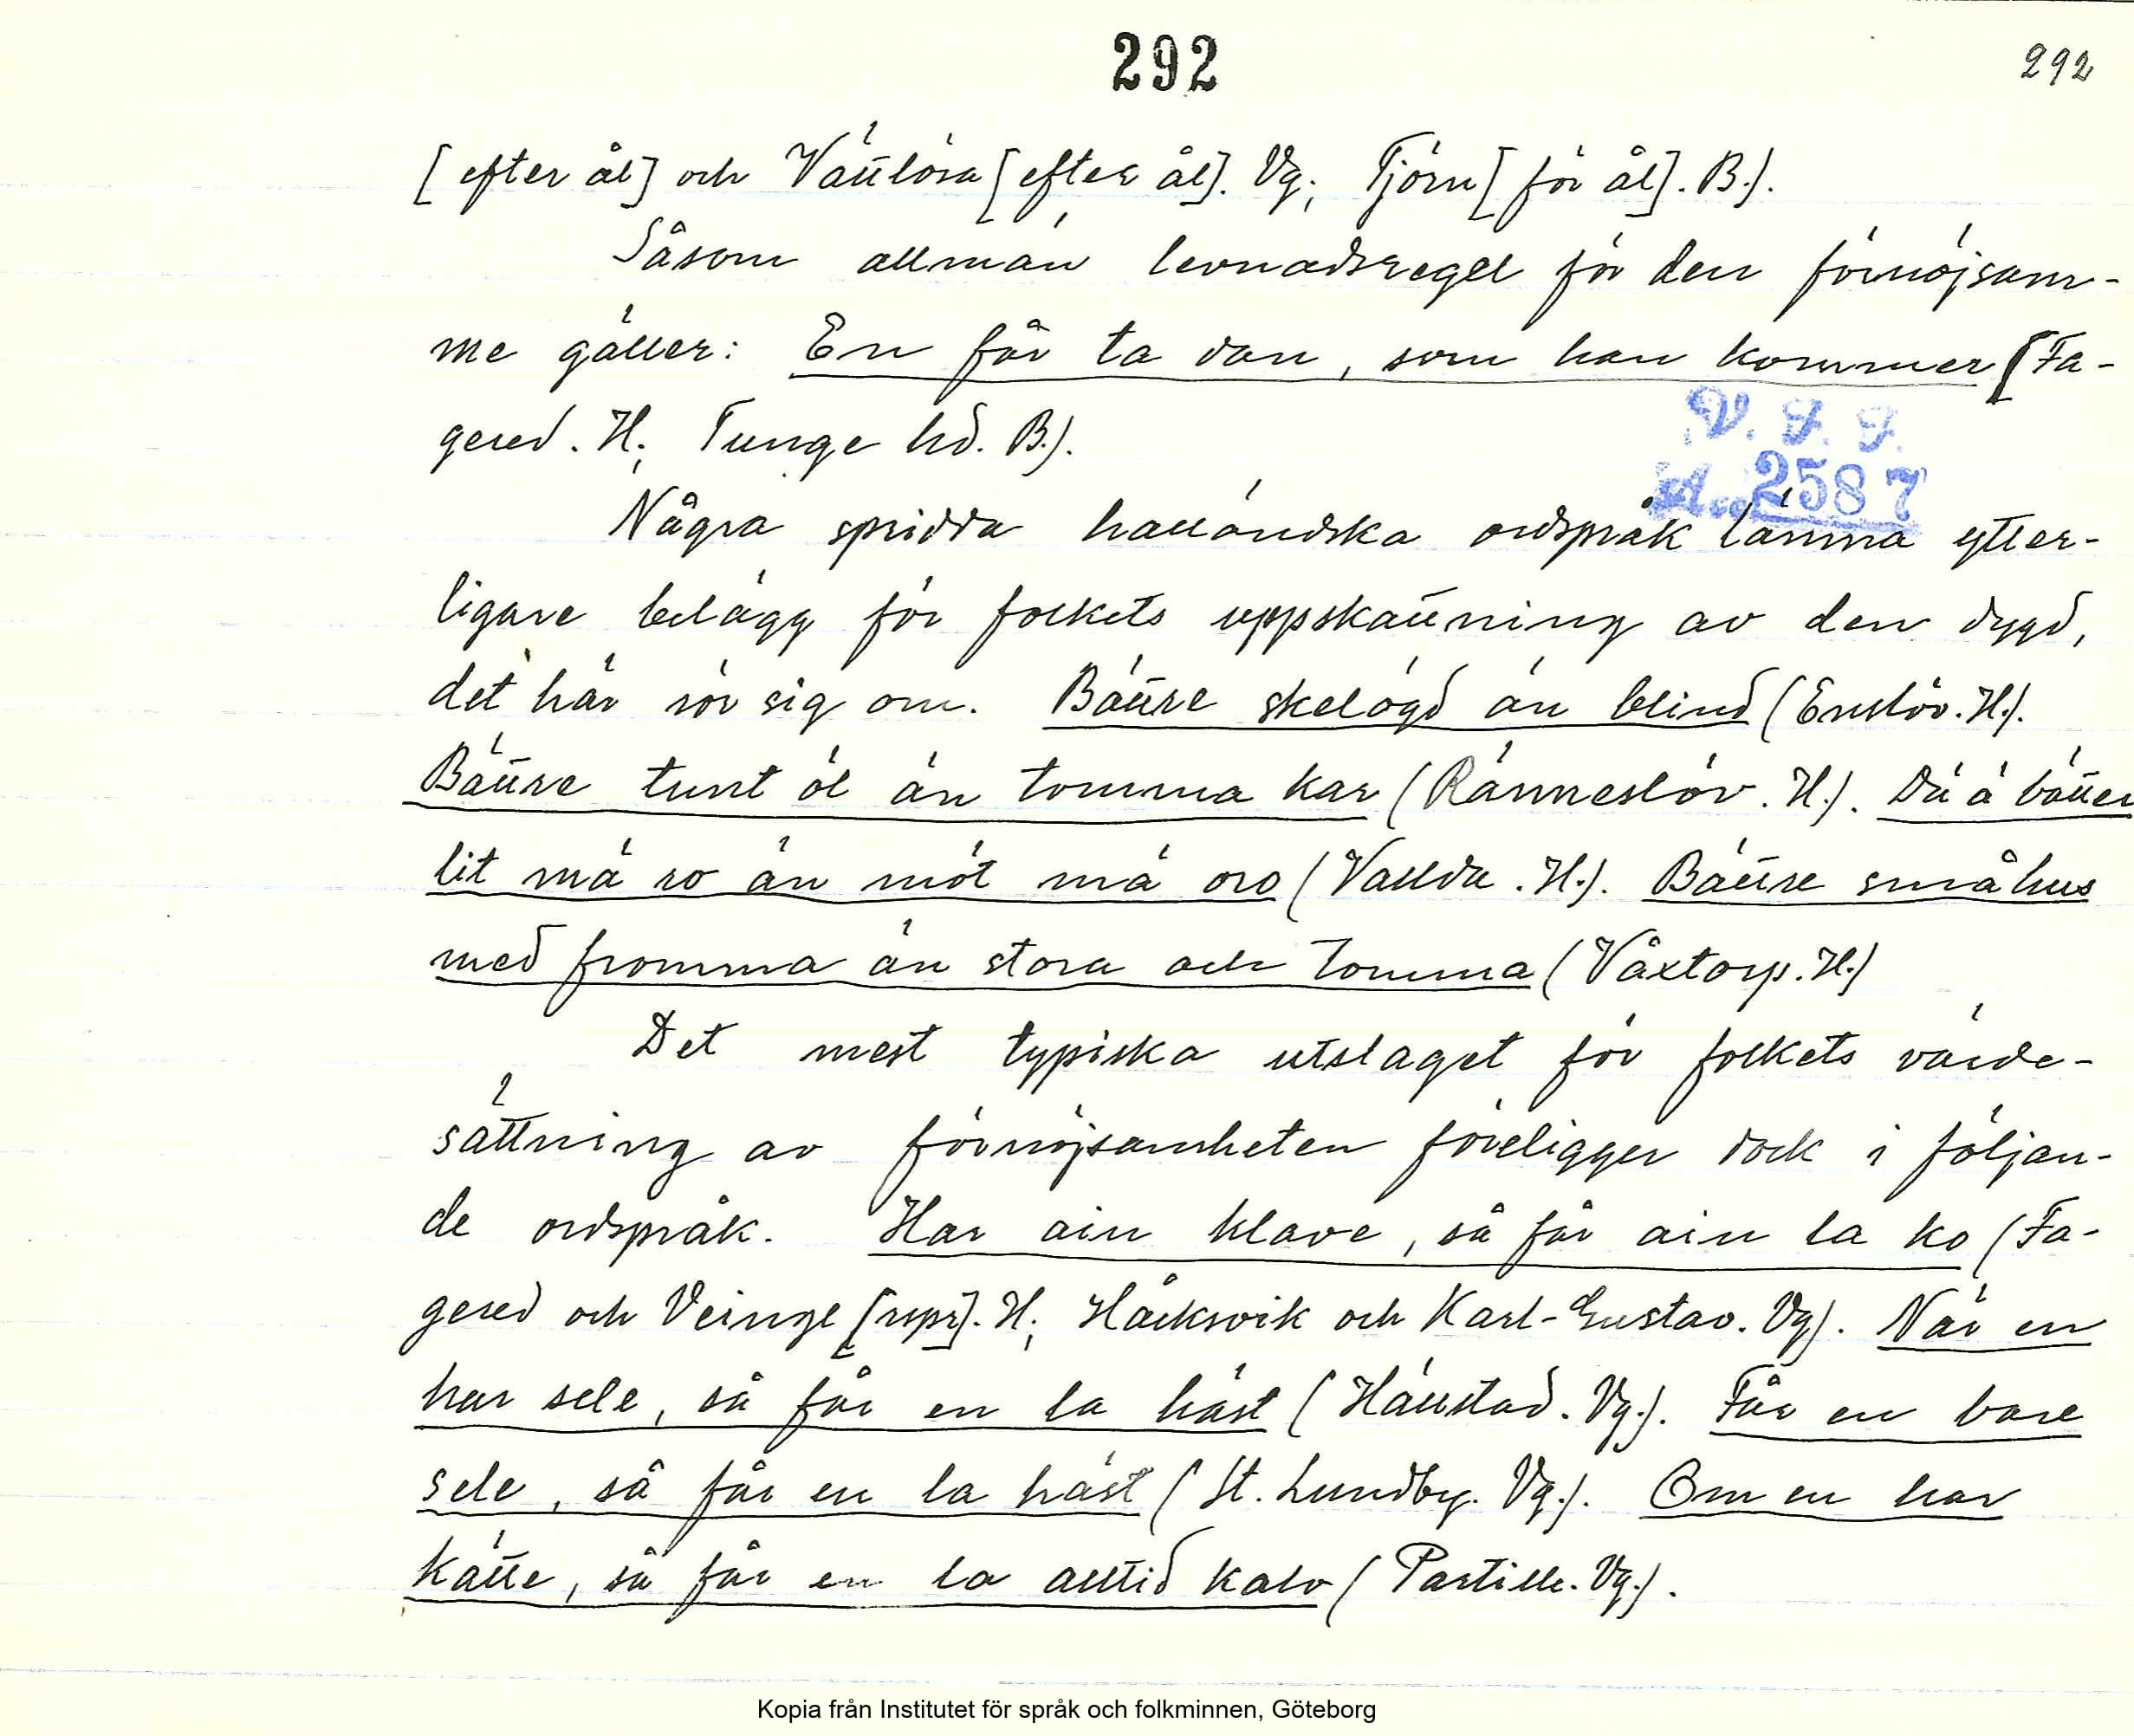 292
292
[efter ål] och Vättlösa [efter ål]. Vg; Tjörn [för ål]. B.).
Såsom allmän levnadsregel för den förnöjsam-
me gäller: En får ta dan, som han kommer (Fa-
gered. H.; Tunge hd. B.).
V. F. F.
Acc 2587
Några spridda halländska ordspråk lämna ytter-
ligare belägg för folkets uppskattning av den dygd,
det här rör sig om. Bättre skelögd än blind (Enslöv. H.).
Bättre tunt öl än tomma kar (Ränneslöv. H.). Dä ä bätter
lit mä ro än möt mä oro (Vallda. H.). Bättre små hus
med fromma än stora och tomma (Våxtorp. H.)
Det mest typiska utslaget för folkets värde-
sättning av förnöjsamheten föreligger dock i följan-
de ordspråk. Har ain klave, så får ain la ko (Fa-
gered och Veinge [rspr]. H; Håcksvik och Karl-Gustav. Vg). När en
har sele, så får en la häst (Hällstad. Vg.). Får en bare
sele, så får en la häst (St. Lundby. Vg.). Om en har
kätte, så får en la alltid kalv (Partille. Vg.).
Kopia från Institutet för språk och folkminnen, Göteborg